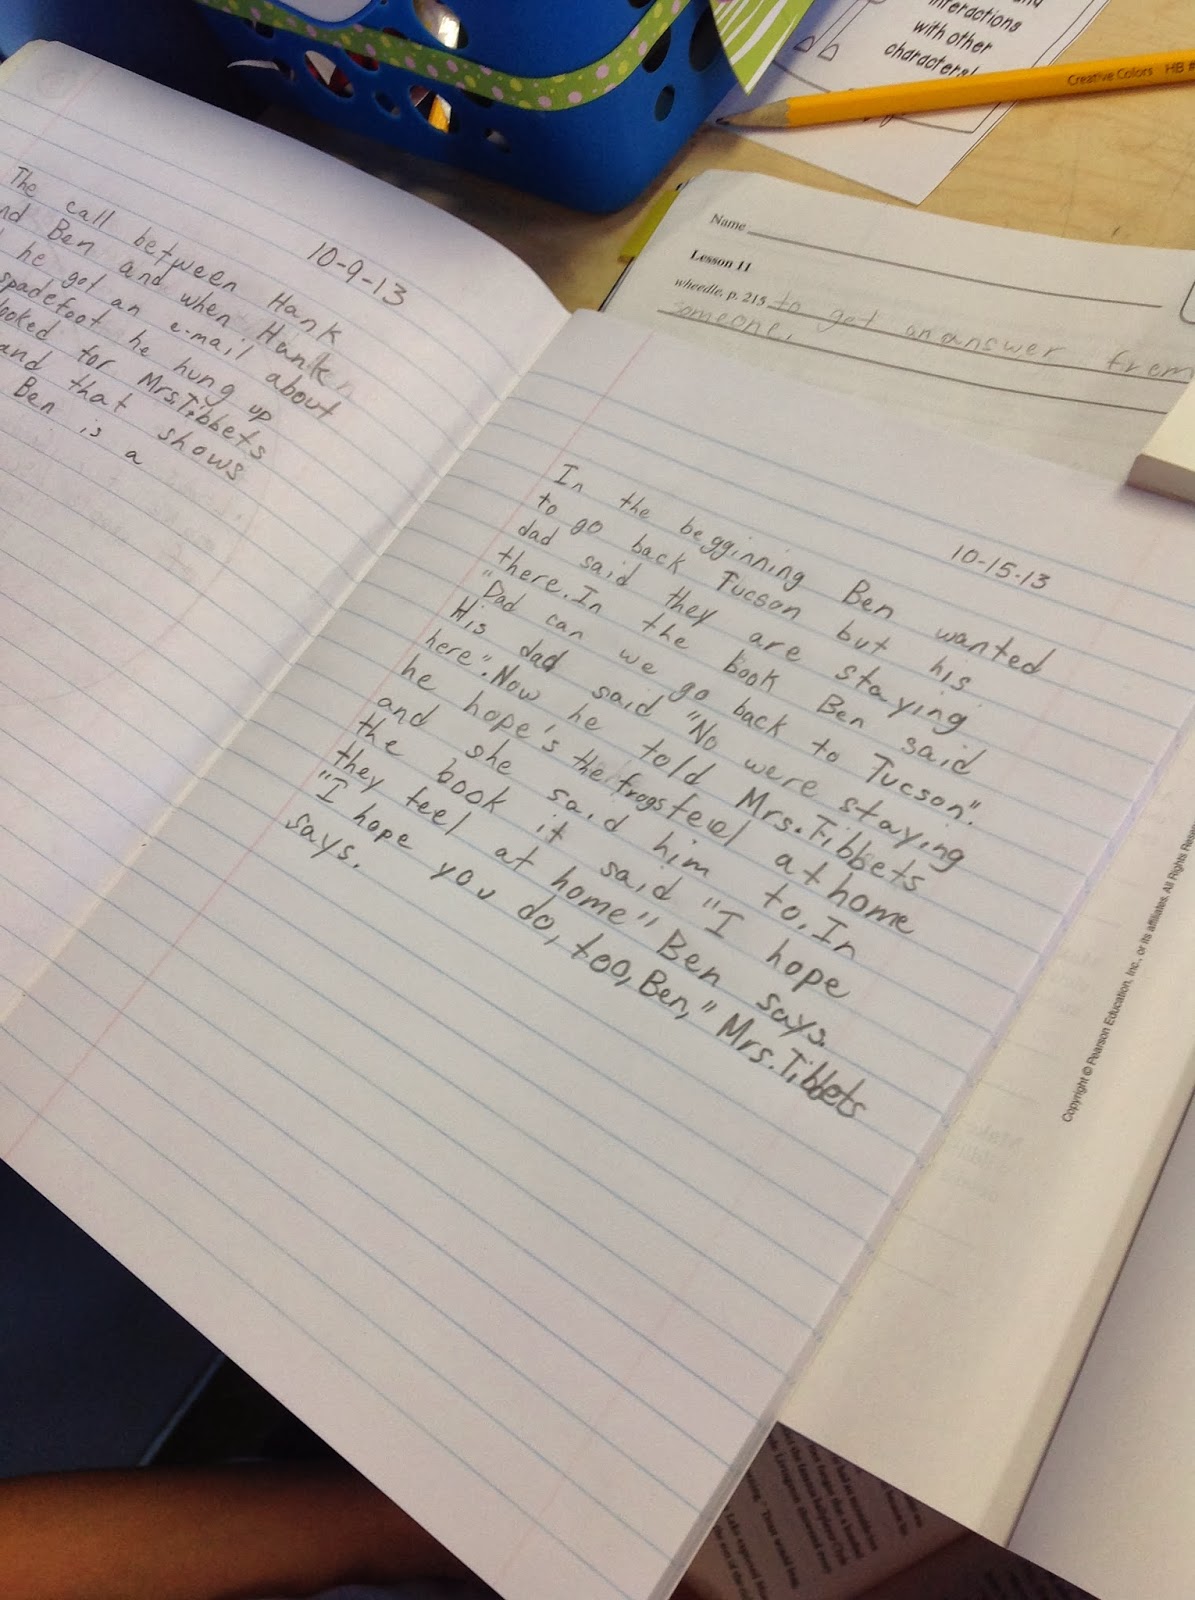 10-9-13
The call between Hank
Ben and when Hank
he got an e-mail about
spadefoot he hung up
looked for Mrs.Tibbets
and that shows
Ben is a
10-15-13
In the begginning Ben wanted
to go back Tucson but his
dad said they are staying
there. In the book Ben said
"Dad can we go back to Tucson".
His dad said "No were staying
here". Now he told Mrs. Tibbets
he hope's the frogs feel at home
and she said him to. In
the book it said "I hope
they feel at home" Ben says.
"I hope you do, too, Ben," Mrs. Tibbets
says.
interactions
with other
characters!
Creative Colors HB #
Name
Lesson 11
wheedle, p. 215 to get an answer from
someone.
Copyright © Pearson Education, Inc., or its affiliates. All Rights